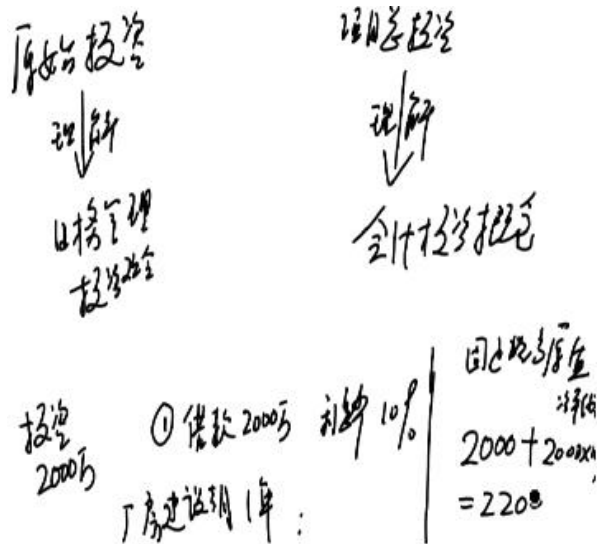 原始投资
理解
财务管理
投资资金
项目总投资
理解
会计投资概念
投资
2000万
① 借款2000万 利率 10%
厂房建设期1年:
固定资产原值
2000+2000×
=2200